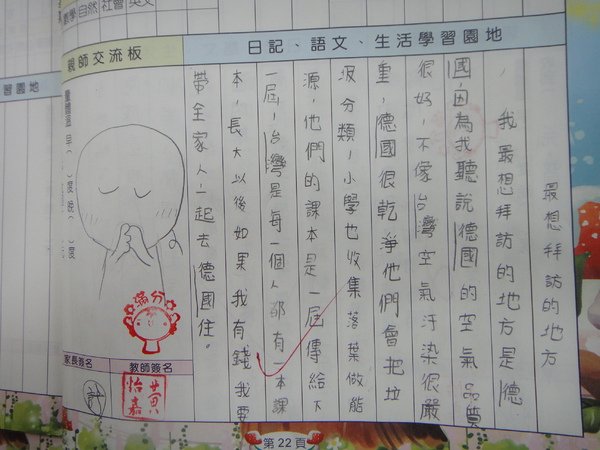 數學 自然 社會 英文
親師交流板
日記、語文、生活學習園地
習園地
最想拜訪的地方
我最想拜訪的地方是德
國,因為我聽說德國的空氣品質
很好,不像台灣空氣汙染很嚴
重,德國很乾淨他們會把垃
圾分類,小學也收集落葉做能
源,他們的課本是一屆傳給下
一屆,台灣是每一個人都有一本課
本,長大以後如果我有錢我要
帶全家人一起去德國住。
量體溫 早( )度 晚( )度
滿分
家長簽名
教師簽名
黃怡嘉
第22頁